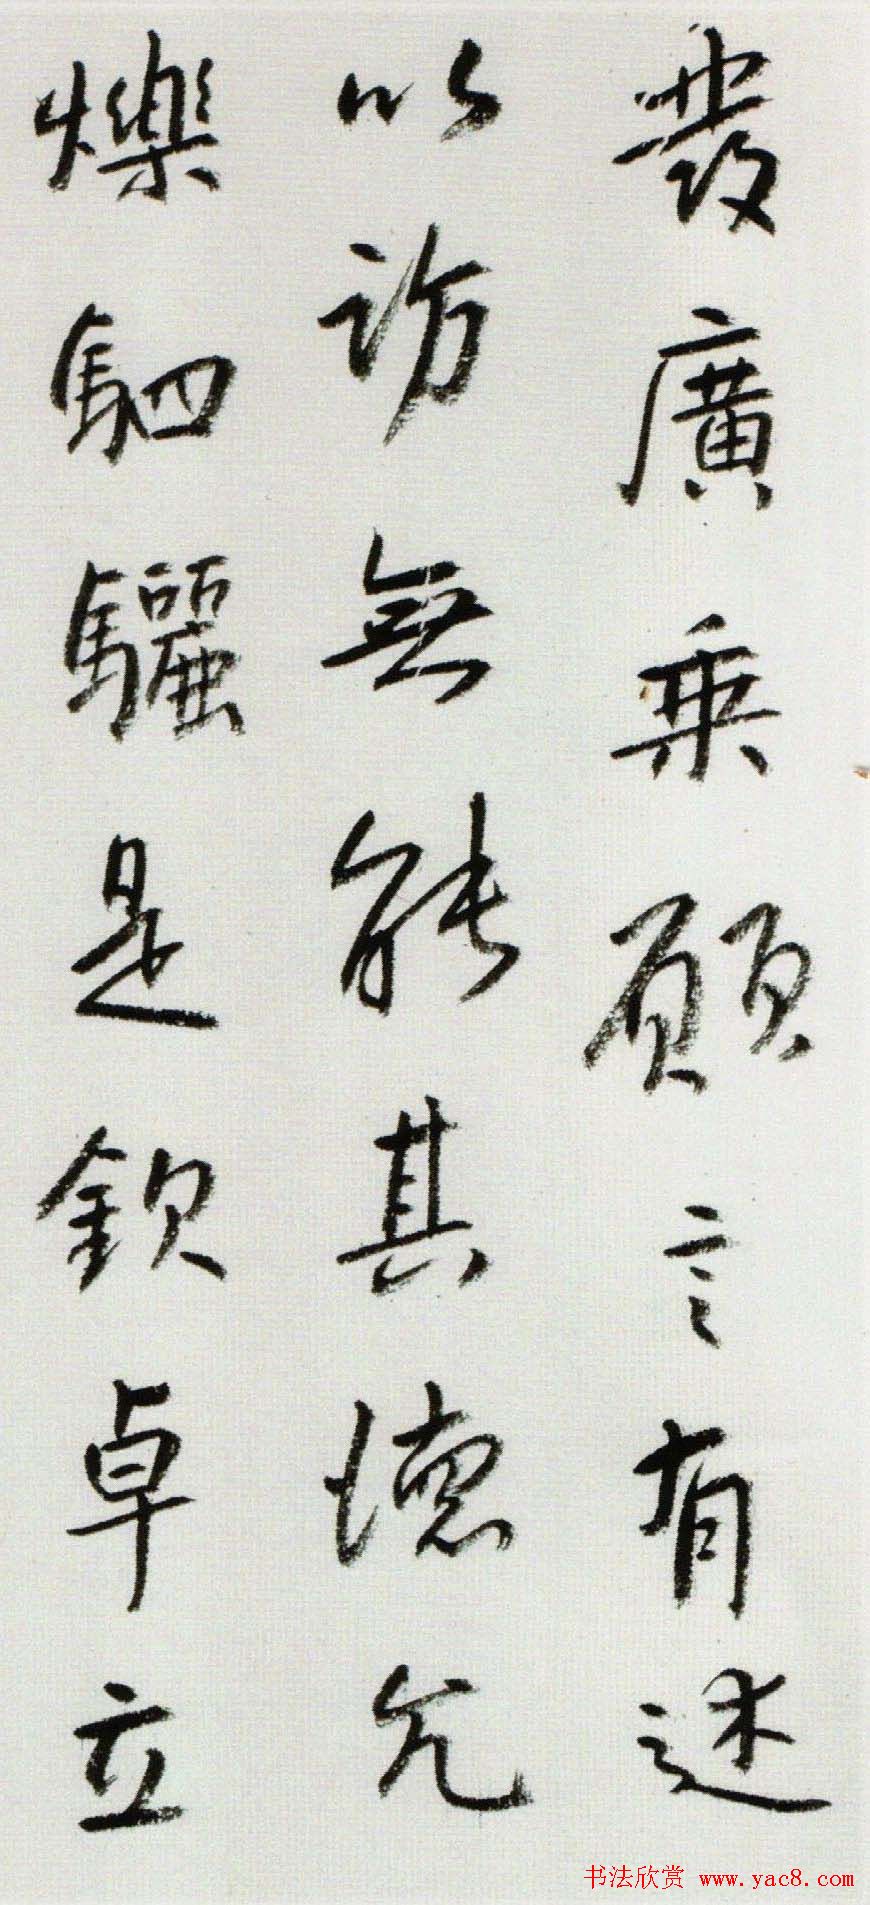 發廣乘顧言有述
以訪無能其德允
爍駟驪是欽卓立
书法欣赏 www.yac8.com